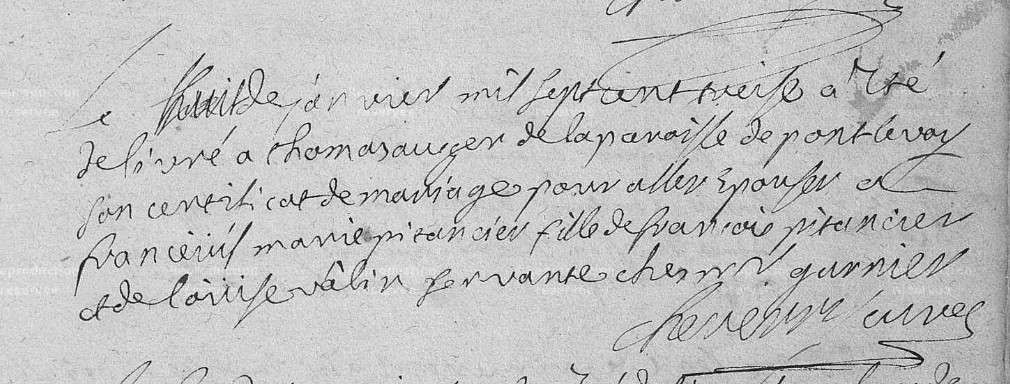 Le huit de janvier mil sept cent treise a été
delivré a thomas auger de la paroisse de pontlevoy
son certificat de mariage pour aller épouser a
franceuïl marie pitancier fille de françois pitancier
et de loüise vâlin servante ches mr garnier
curé